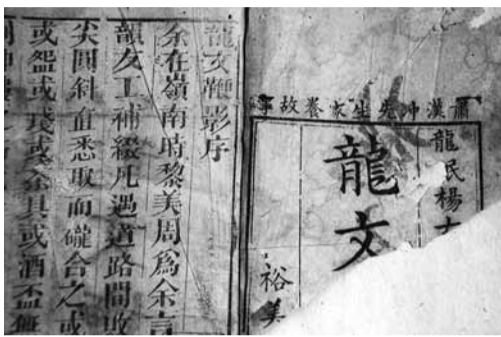 漢冲先生家養故事
龍民楊
龍文
裕美
龍文鞭影序
余在嶺南時黎美周爲余言
韻友工補綴凡遇道路間敗
尖圓斜直悉取而礲合之或
或盌或琖或具或酒盃無